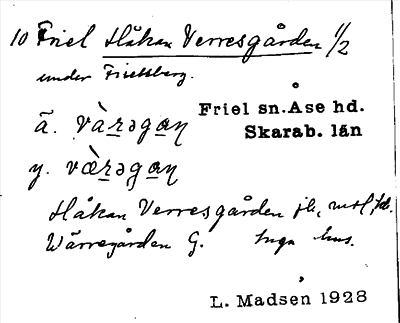 10 Friel Håkan Verresgården 1/2
under Frielsberg.
Friel sn. Åse hd.
Skarab. län
ä. vàrəgan
y. vœ̀rəgan
Håkan Verresgården jb,
Wärregården G. Inga hus.
L. Madsen 1928